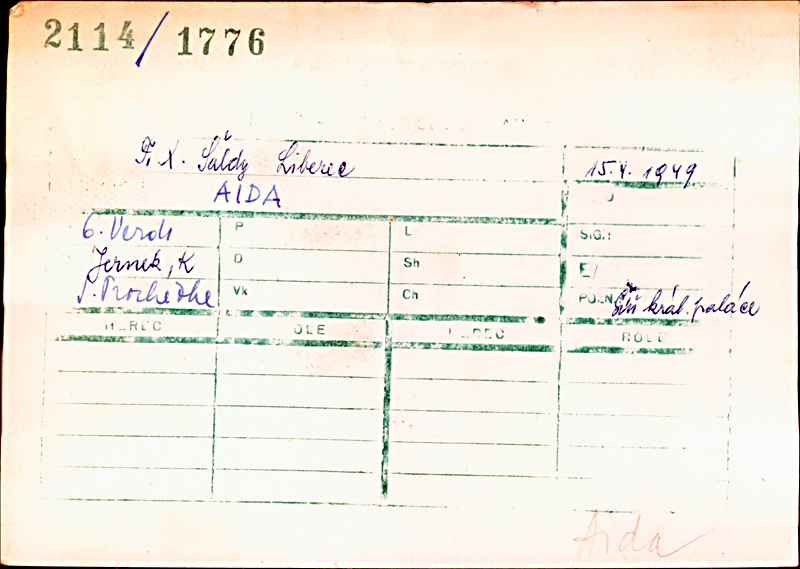 2114/1776
F. X. Šaldy Liberec 15.4.1949
AIDA
G. Verdi P L SIG.:
Jernek, K D Sh E/
J. Procházka Vk Ch POZN. Síň král. paláce
HEREC OLE HEREC ROLE
Aida